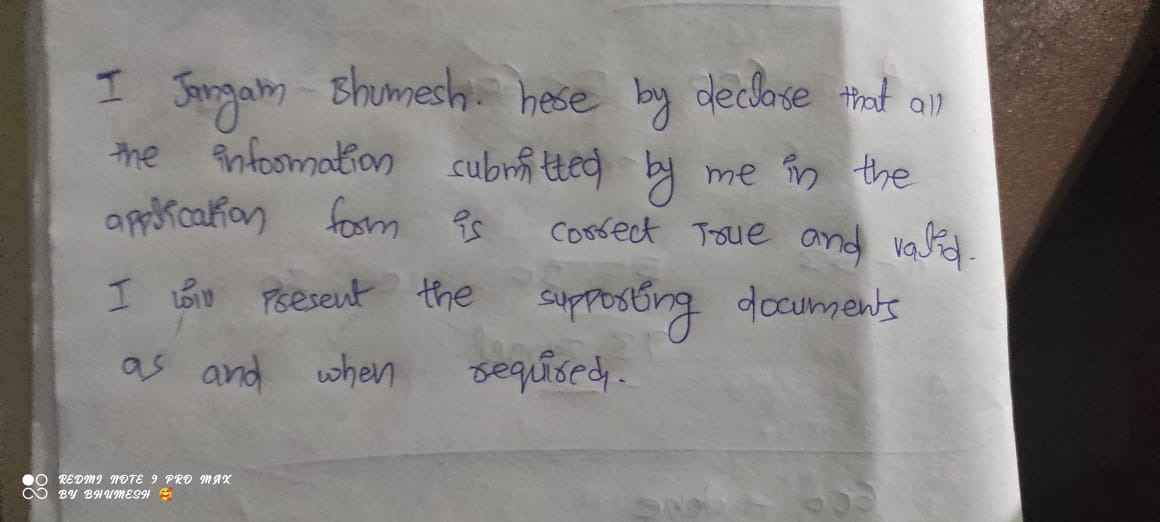 I Jangam Bhumesh. here by declare that all
the information submitted by me in the
application form is correct True and valid.
I will Present the supporting documents
as and when required.
REDMI NOTE 9 PRO MAX
BY BHUMESH 🥰